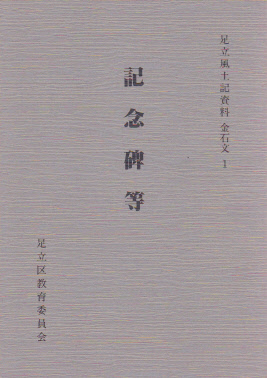 足立風土記資料 金石文 1
記念碑等
足立区教育委員会